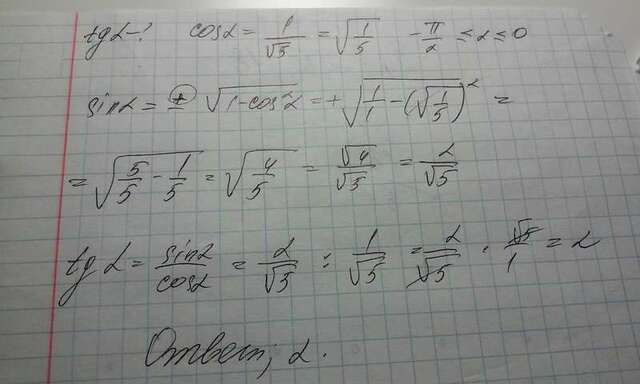 tg α - ? cos α = 1/√5 = √(1/5) -π/2 ≤ α ≤ 0
sin α = ± √(1-cos²α) = +√(1/1 - (√(1/5))² =
= √(5/5 - 1/5) = √(4/5) = √4/√5 = 2/√5
tg α = sin α/cos α = 2/√5 : 1/√5 = 2/√5 · √5/1 = 2
Ответ; 2.